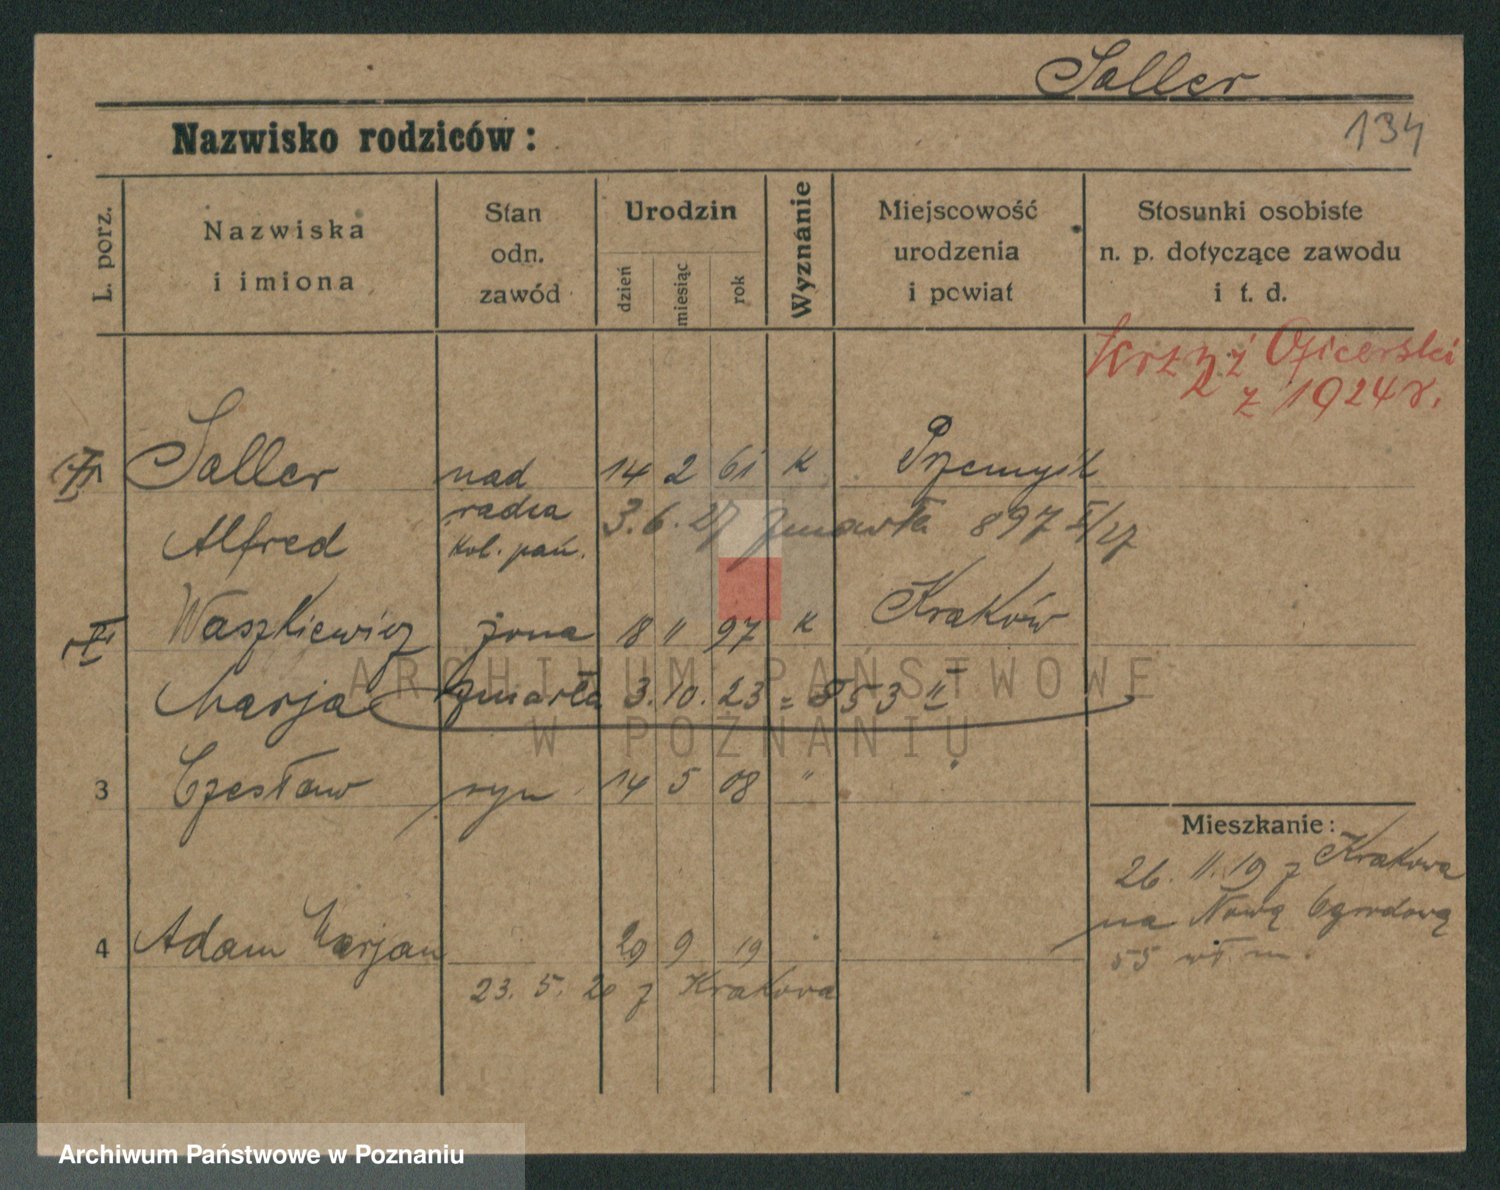 Saller
134
Nazwisko rodziców:
L. porz.
Nazwiska i imiona
Stan odn. zawód
Urodzin
dzień miesiąc rok
Wyznanie
Miejscowość urodzenia i powiat
Stosunki osobiste n. p. dotyczące zawodu i t. d.
Krzyż Oficerski
z 1924 r.
Saller nad 14 2 61 K Przemyśl
radca
Alfred kol. pań. 3. 6. 27 zmarł 897 /27
Waszkiewicz żona 18 11 97 K Kraków
Marja zmarła 3. 10. 23 = 553 II
3 Czesław syn 14 5 08 "
Mieszkanie:
26. 11. 19 z Krakowa
na Nową Ogrodową
55 wł. m.
4 Adam Marjan 29 9 19
23. 5. 20 z Krakowa
ARCHIWUM PAŃSTWOWE
W POZNANIU
Archiwum Państwowe w Poznaniu